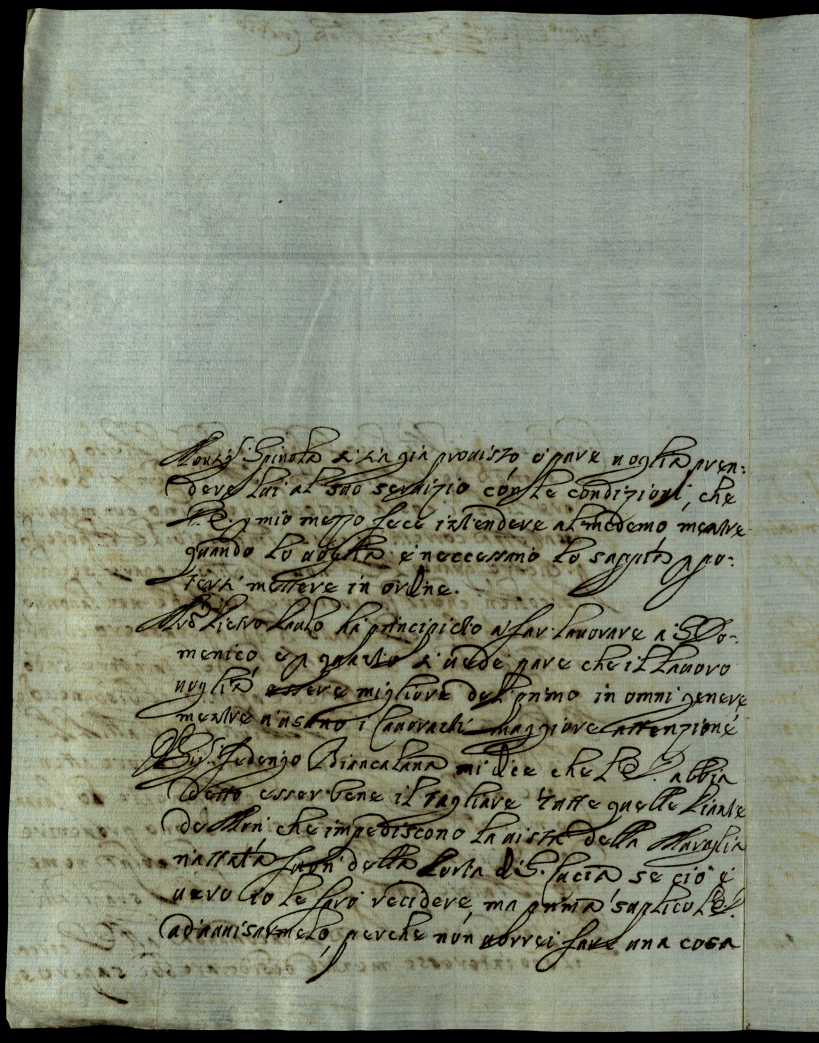 Monsig.r Spinola si sia già provisto o pare voglia pren=
dere lui al suo servizio con le condizioni, che
V. E. p mio mezzo fece intendere al medemo, mentre
quando lo voglia è neccessario lo sappia p po=
tersi mettere in ordine.
M.ro Pietro Paulo ha principiato a far lavorare a S. Do=
menico e p quanto si vede pare che il lavoro
voglia essere migliore del primo in omni genere
mentre v'usano i lavorachi maggiore attenzione
Il Sig.r Federigo Biancalana mi dice che V. E. abbia
detto esser bene il tagliare tutte quelle Piante
de Mori che impediscono la vista della Muraglia
fuori della Porta di S. Lucia se ciò è
vero io le farò recidere, ma prima suplico V. E.
ad'avvisarmelo, perche non vorrei fare una cosa